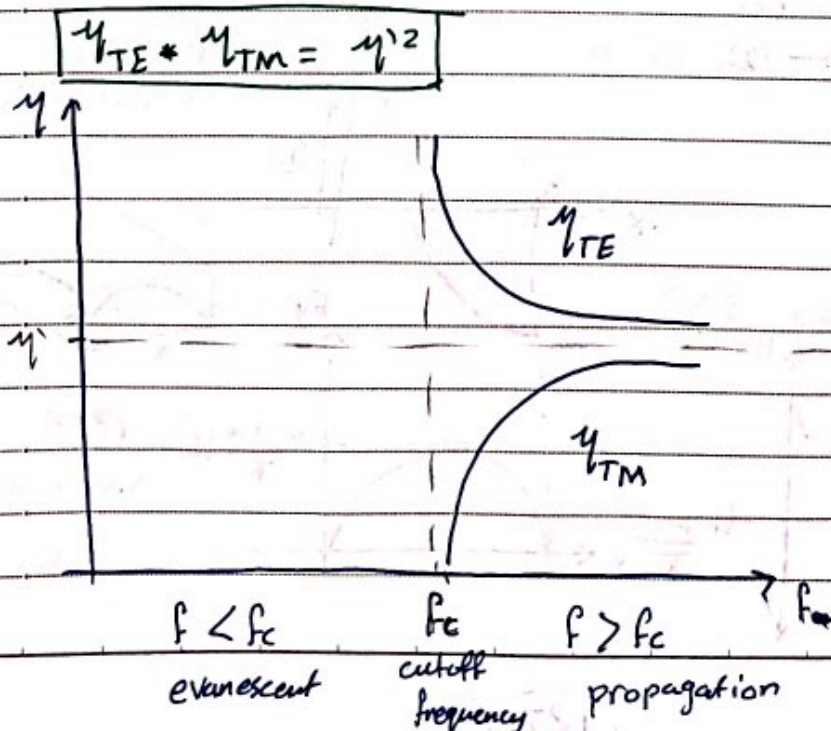 η_TE * η_TM = η'²
η
η_TE
η'
η_TM
f < fc fc f > fc f
evanescent cutoff frequency propagation